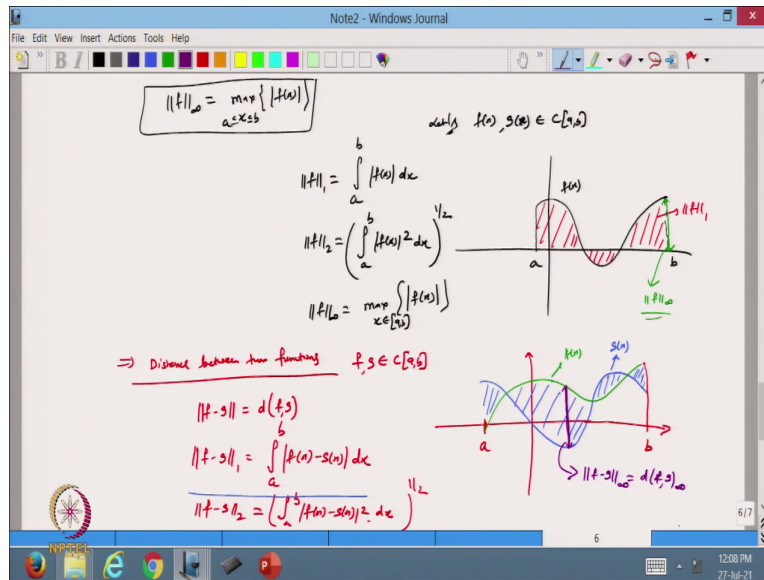 Note2 - Windows Journal
File Edit View Insert Actions Tools Help
‖f‖∞ = max {|f(x)|}
a≤x≤b
Let's f(x), g(x) ∈ C[a,b]
‖f‖₁ = ∫ₐᵇ |f(x)| dx
‖f‖₂ = (∫ₐᵇ |f(x)|² dx)^1/2
‖f‖∞ = max {|f(x)|}
x∈[a,b]
f(x)
‖f‖₁
a
b
‖f‖∞
⇒ Distance between two functions f, g ∈ C[a,b]
‖f-g‖ = d(f,g)
‖f-g‖₁ = ∫ₐᵇ |f(x)-g(x)| dx
‖f-g‖₂ = (∫ₐᵇ |f(x)-g(x)|² dx)^1/2
f(x)
g(x)
a
b
‖f-g‖∞ = d(f,g)∞
6/7
6
NPTEL
12:08 PM
27-Jul-21